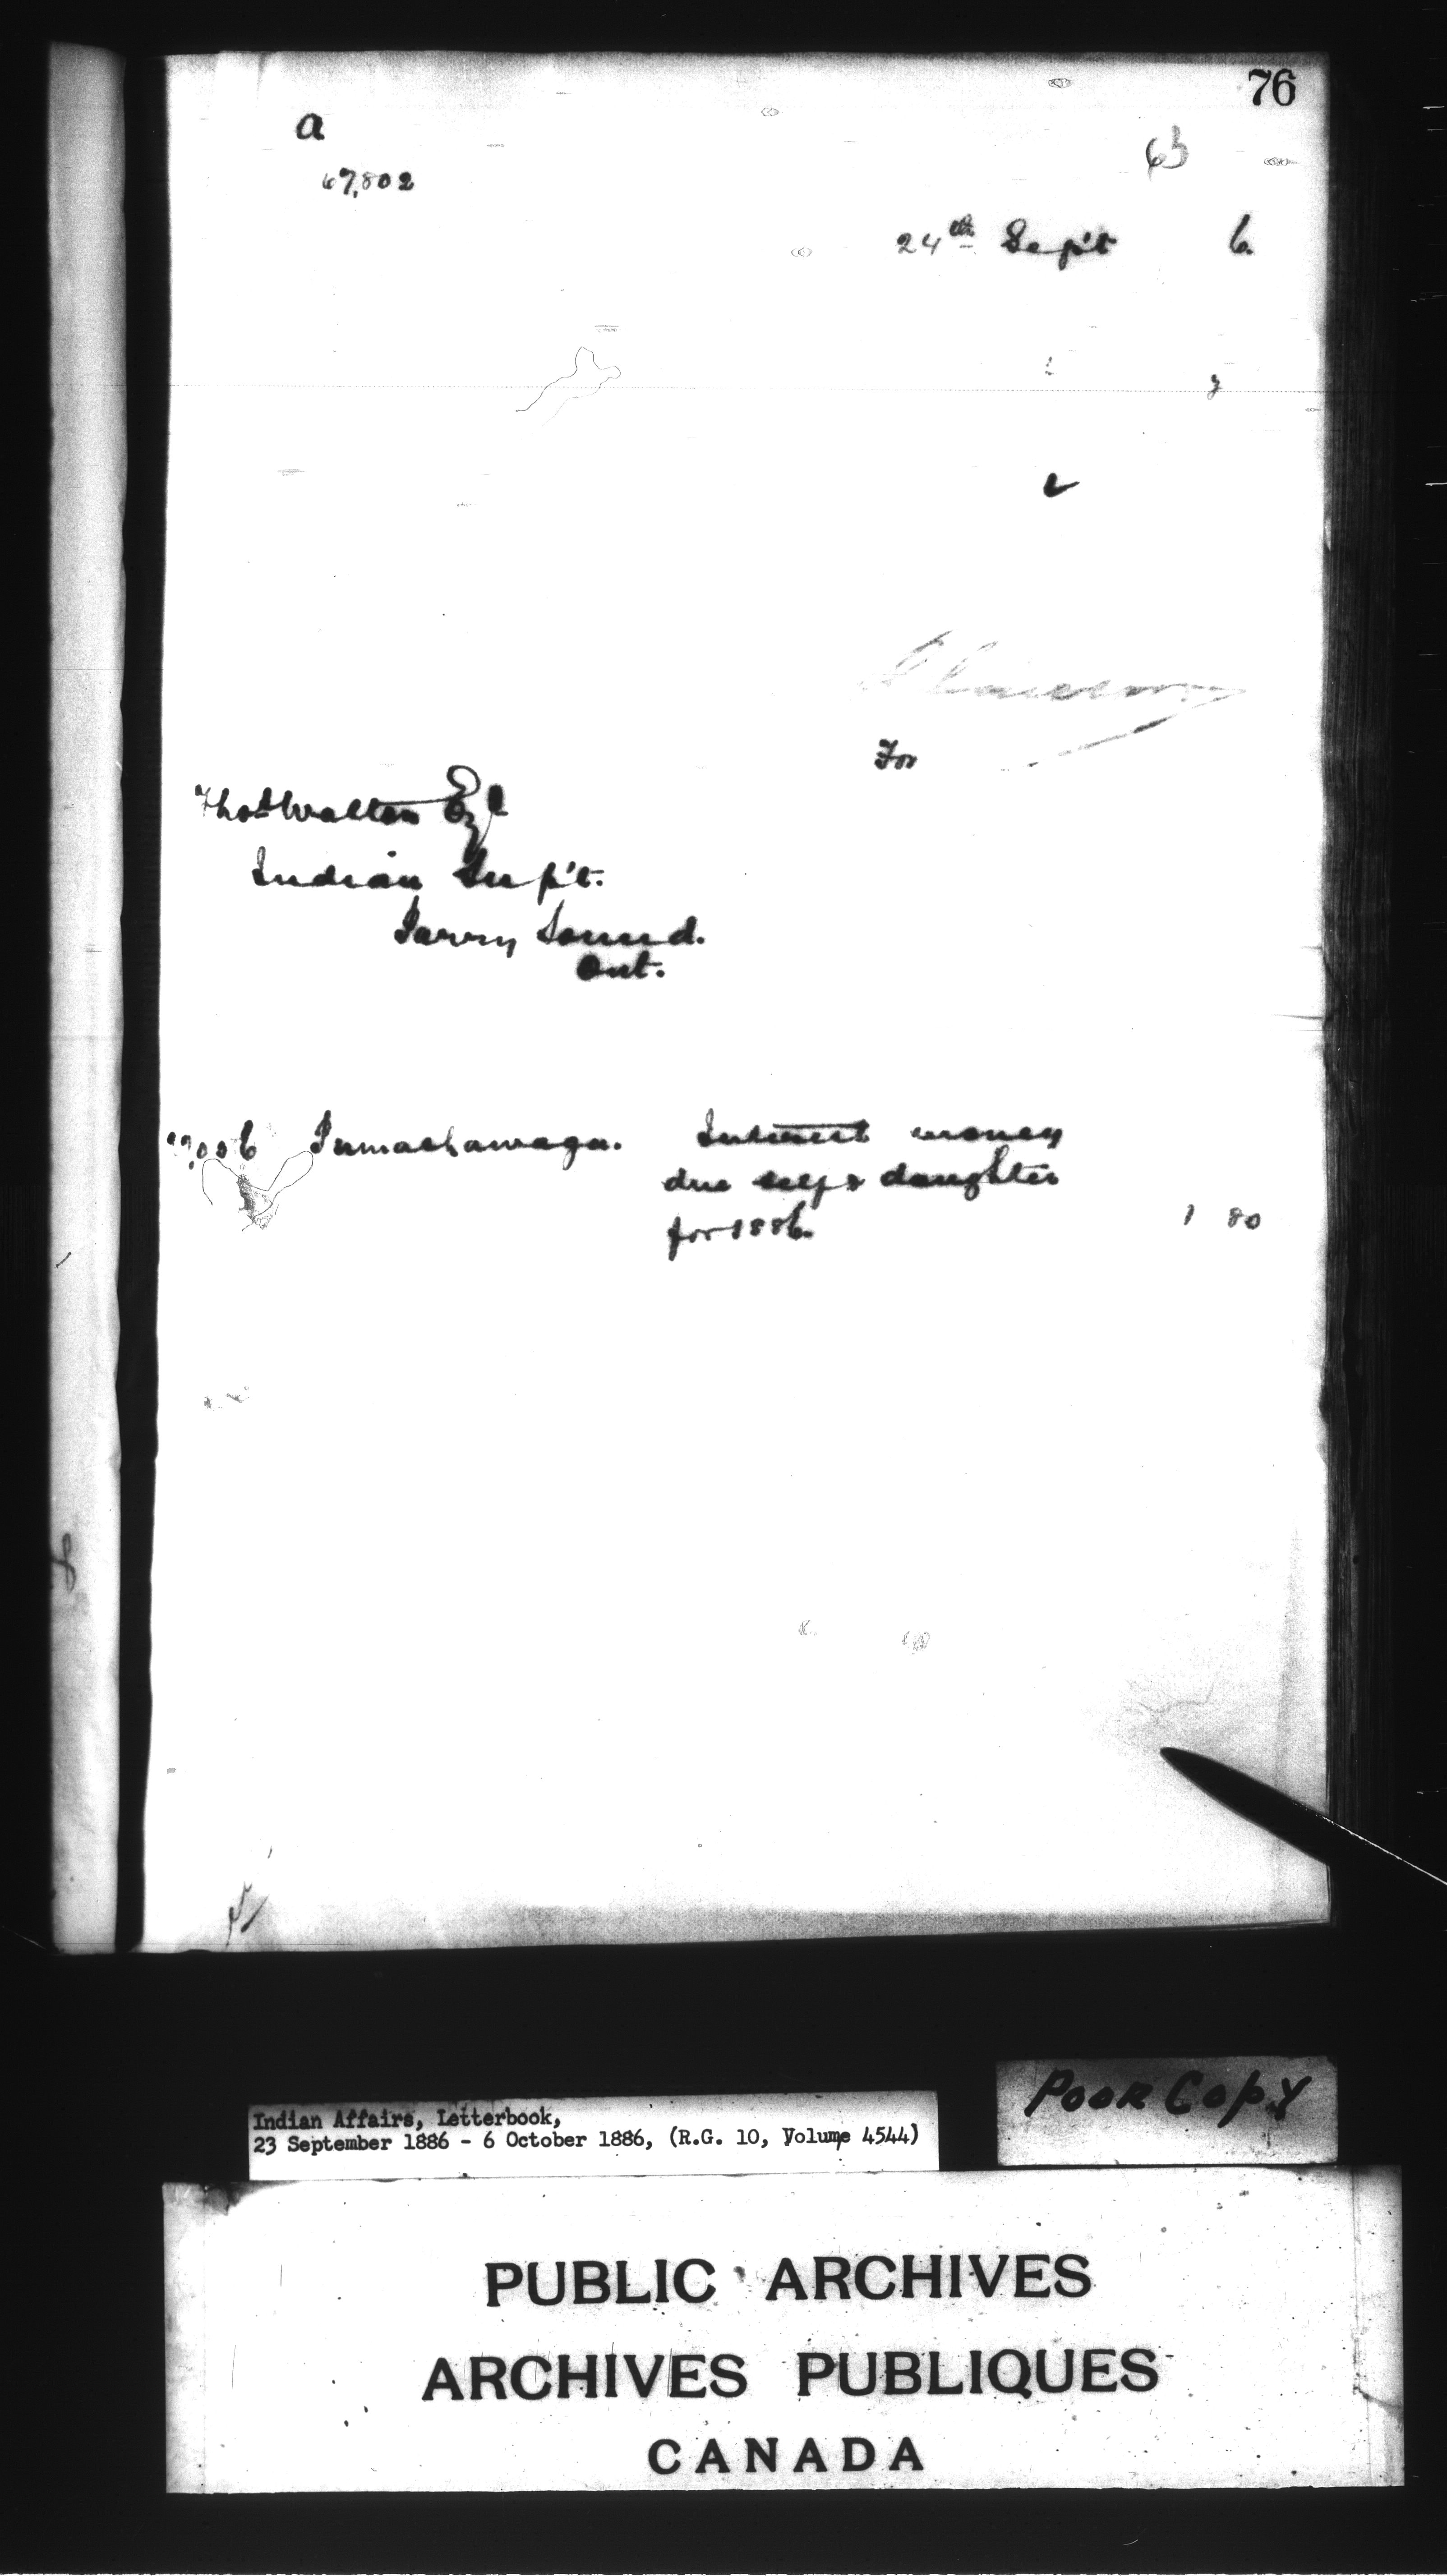 76
a
63
67,802
24th Sep't 6.
For
Thos Walton Esq
Indian Sup't.
Parry Sound.
Ont.
Interest money
due self & daughter
for 1886. 1 80
Poor Copy
Indian Affairs, Letterbook,
23 September 1886 - 6 October 1886, (R.G. 10, Volume 4544)
PUBLIC ARCHIVES
ARCHIVES PUBLIQUES
CANADA